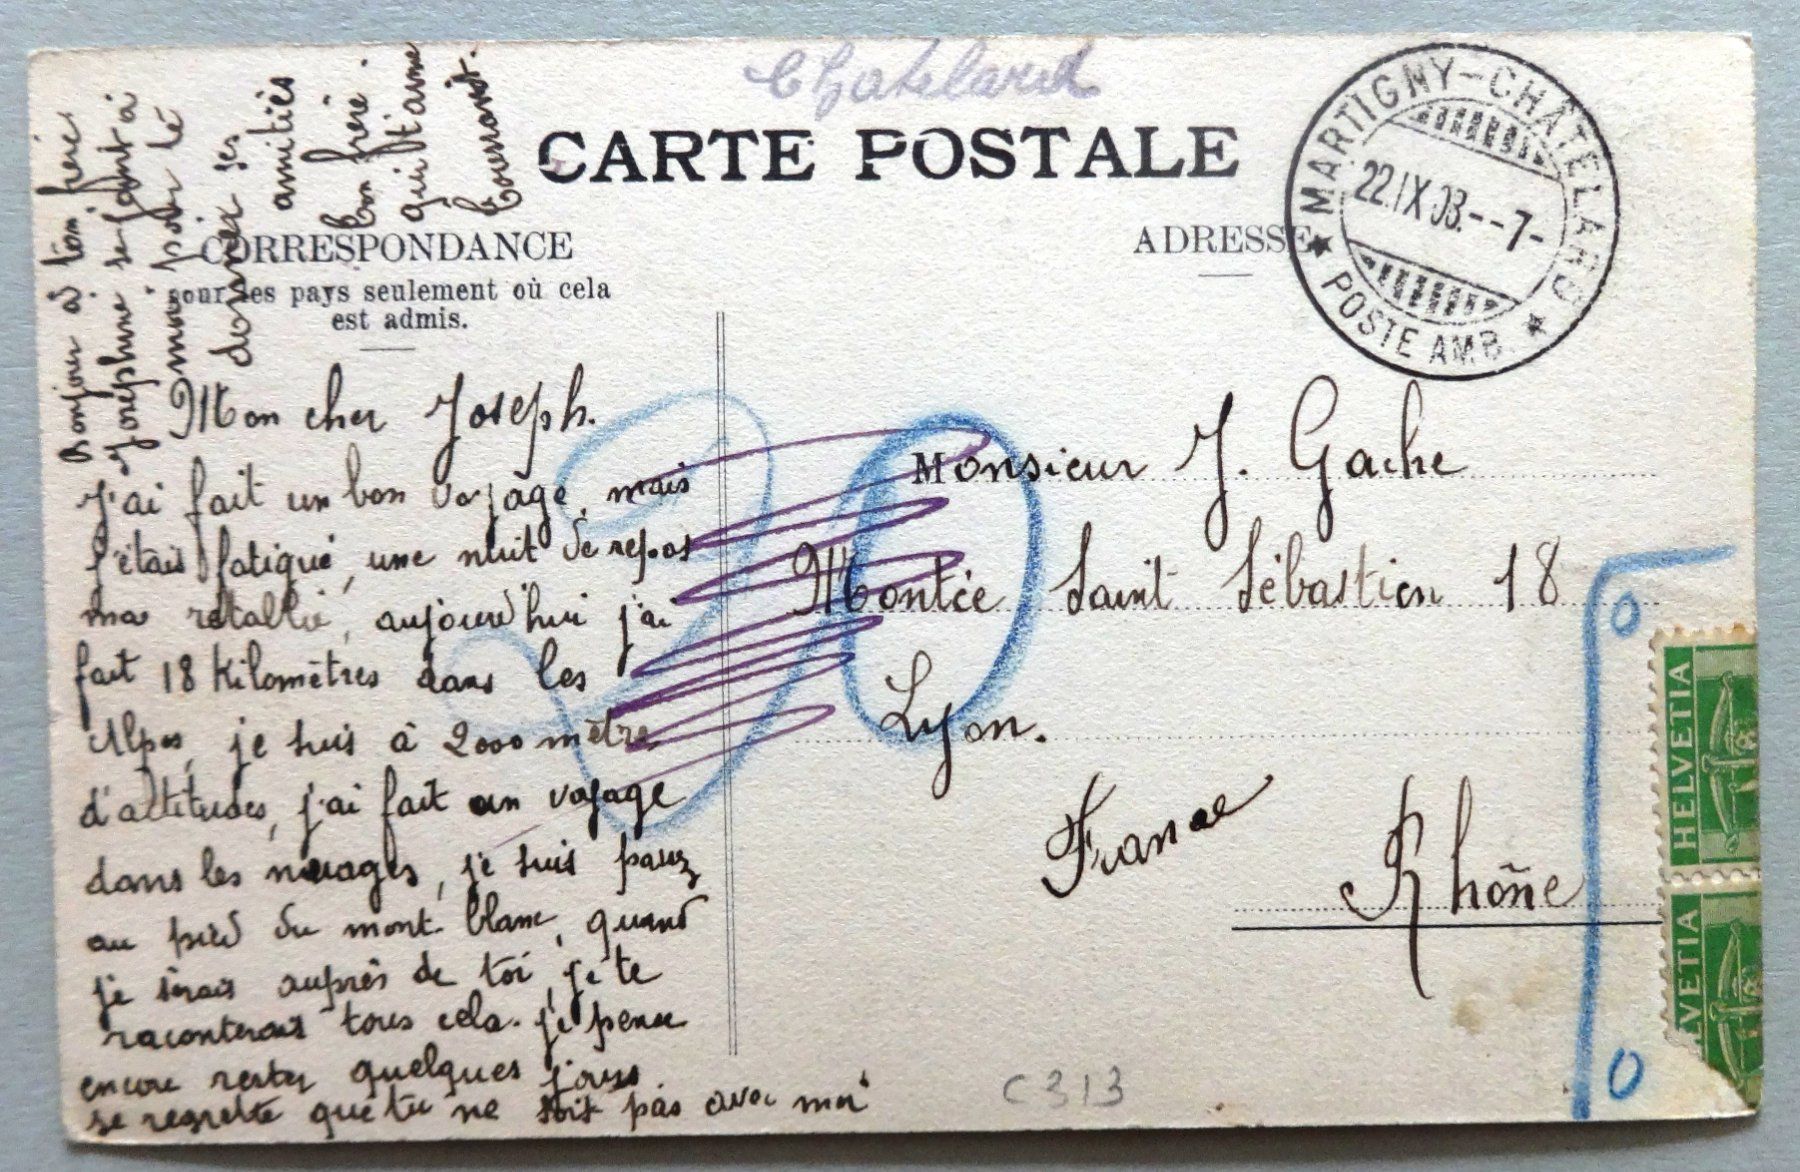 Chatelard
CARTE POSTALE
CORRESPONDANCE
pour les pays seulement où cela
est admis.
ADRESSE
MARTIGNY-CHÂTELARD
22.IX.08.--7-
POSTE AMB.
Bonjour à ton frère
Joséphine se joint à
moi pour te
donner ses
amitiés
ton frère
qui t'aime
Mon cher Joseph.
j'ai fait un bon voyage, mais
j'étais fatigué, une nuit de repos
ma rétabli, aujourd'hui j'ai
fait 18 Kilomètres dans les
Alpes, je suis à 2000 mètre
d'altitudes, j'ai fait un voyage
dans les nuages, je suis
au pied du mont blanc, quand
je serais auprès de toi, je te
raconterais tous cela. je pense
encore rester quelques jours
je regrette que tu ne sois pas avec moi
20
Monsieur J. Gache
Montée Saint Sébastien 18
Lyon.
France
Rhône
0
0
HELVETIA
HELVETIA
C 313